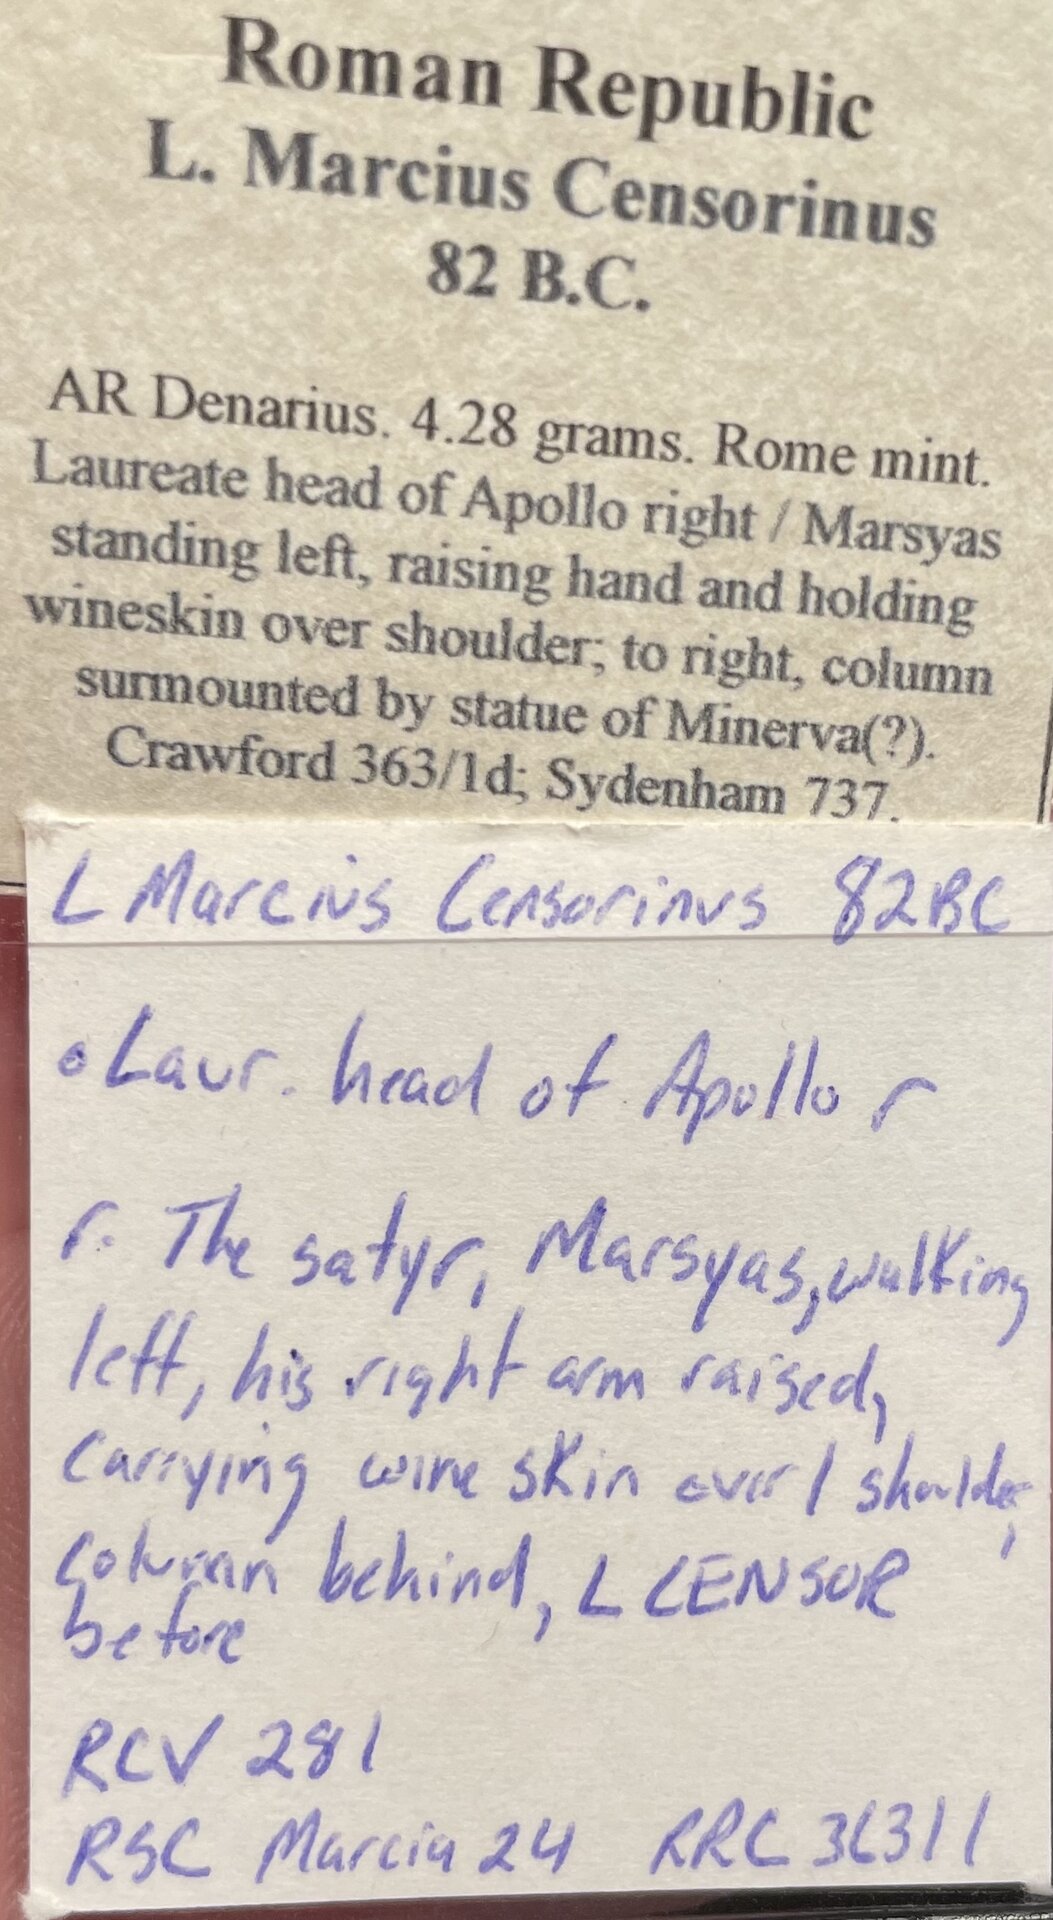 Roman Republic
L. Marcius Censorinus
82 B.C.
AR Denarius. 4.28 grams. Rome mint.
Laureate head of Apollo right / Marsyas
standing left, raising hand and holding
wineskin over shoulder; to right, column
surmounted by statue of Minerva(?).
Crawford 363/1d; Sydenham 737.
L Marcius Censorinus 82BC
o Laur. head of Apollo r
r. The satyr, Marsyas, walking
left, his right arm raised,
carrying wine skin over l shoulder,
column behind, L CENSOR
before
RCV 281
RSC Marcia 24 RRC 363/1